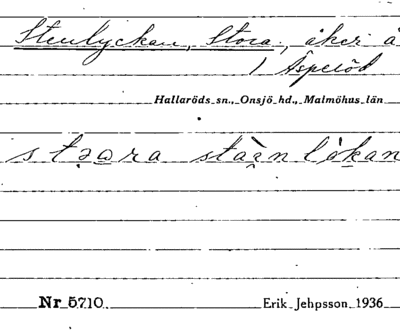 Stenlyckan, Stora, åker å
1 Äsperöd
Hallaröds sn., Onsjö hd., Malmöhus län
Nr 5710
Erik Jehpsson 1936